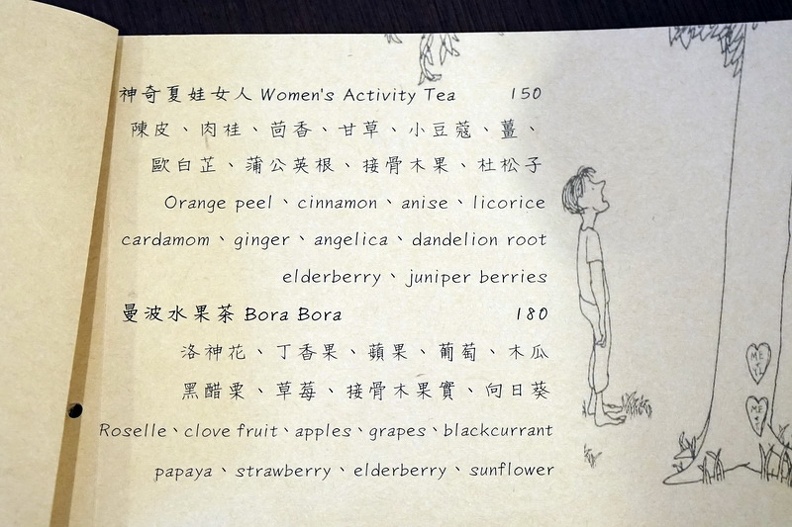 神奇夏娃女人 Women's Activity Tea 150
陳皮、肉桂、茴香、甘草、小豆蔻、薑、
歐白芷、蒲公英根、接骨木果、杜松子
Orange peel、cinnamon、anise、licorice
cardamom、ginger、angelica、dandelion root
elderberry、juniper berries
曼波水果茶 Bora Bora 180
洛神花、丁香果、蘋果、葡萄、木瓜
黑醋栗、草莓、接骨木果實、向日葵
Roselle、clove fruit、apples、grapes、blackcurrant
papaya、strawberry、elderberry、sunflower
ME
ME